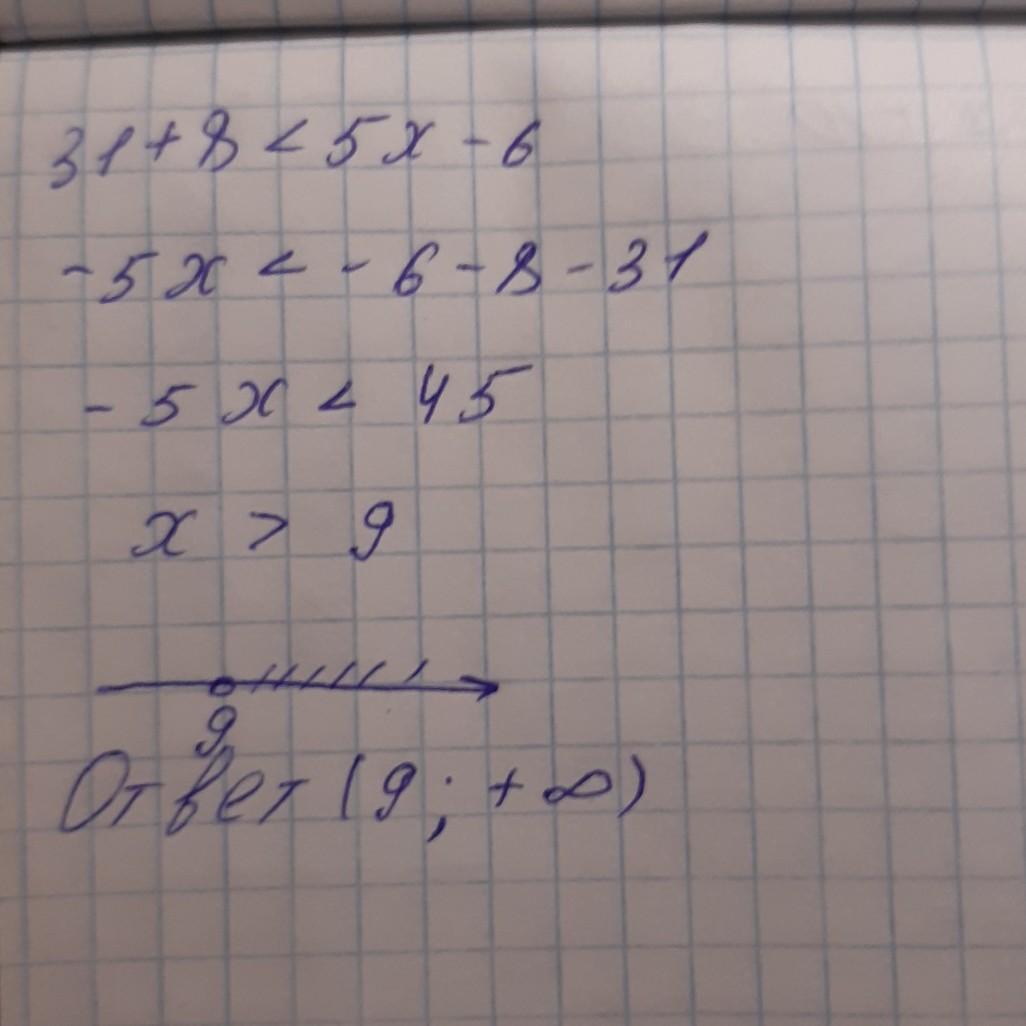 31+8<5x-6
-5x<-6-8-31
-5x<45
x>9
9
Ответ (9;+∞)